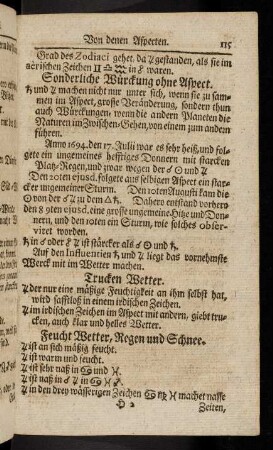 Von denen Aspecten. 115
Grad des Zodiaci gehet, da ♃ gestanden, als sie im
aërischen Zeichen ♊ ♎ ♒ in ☍ waren.
Sonderliche Würckung ohne Aspect.
♄ und ♃ machen nicht nur unter sich, wenn sie zu sam-
men im Aspect, grosse Veränderung, sondern thun
auch Würckungen, wenn die andern Planeten die
Naturen im Zwischen-Gehen, von einem zum andern
führen.
Anno 1694. den 17. Julii war es sehr heiß, und fol-
gete ein ungemeines hefftiges Donnern mit starcken
Platz-Regen, und zwar wegen der ☍ ☉ und ♃
Den 20ten ejusd. folgete aus selbigen Aspect ein star-
cker ungemeiner Sturm. Den 10ten Augusti kam die
☉ von der ☍ ♃ zu dem △ ♄. Dahero entstand vorhero
den 8 9ten ejusd. eine grosse ungemeine Hitze und Don-
nern, und den 10ten ein Sturm, wie solches obser-
viret worden.
♄ in ☌ oder ☍ ♃ ist stärcker als ☌ ☉ und ♄.
Auf den Influentien ♄ und ♃ liegt das vornehmste
Werck mit im Wetter machen.
Trucken Wetter.
♃ der nur eine mäßige Feuchtigkeit an ihm selbst hat,
wird safftloß in einem irdischen Zeichen.
♃ im irdischen Zeichen im Aspect mit andern, giebt tru-
cken, auch klar und helles Wetter.
Feucht Wetter, Regen und Schnee.
♃ ist an sich mäßig feucht.
♃ ist warm und feucht.
♃ ist sehr naß in ♋ und ♓.
♃ ist naß in ☍ ♃ in ♋ ♓ ☌.
♃ in den drey wässerigen Zeichen ♋ ♏ ♓ machet nasse
H 2 Zeiten,